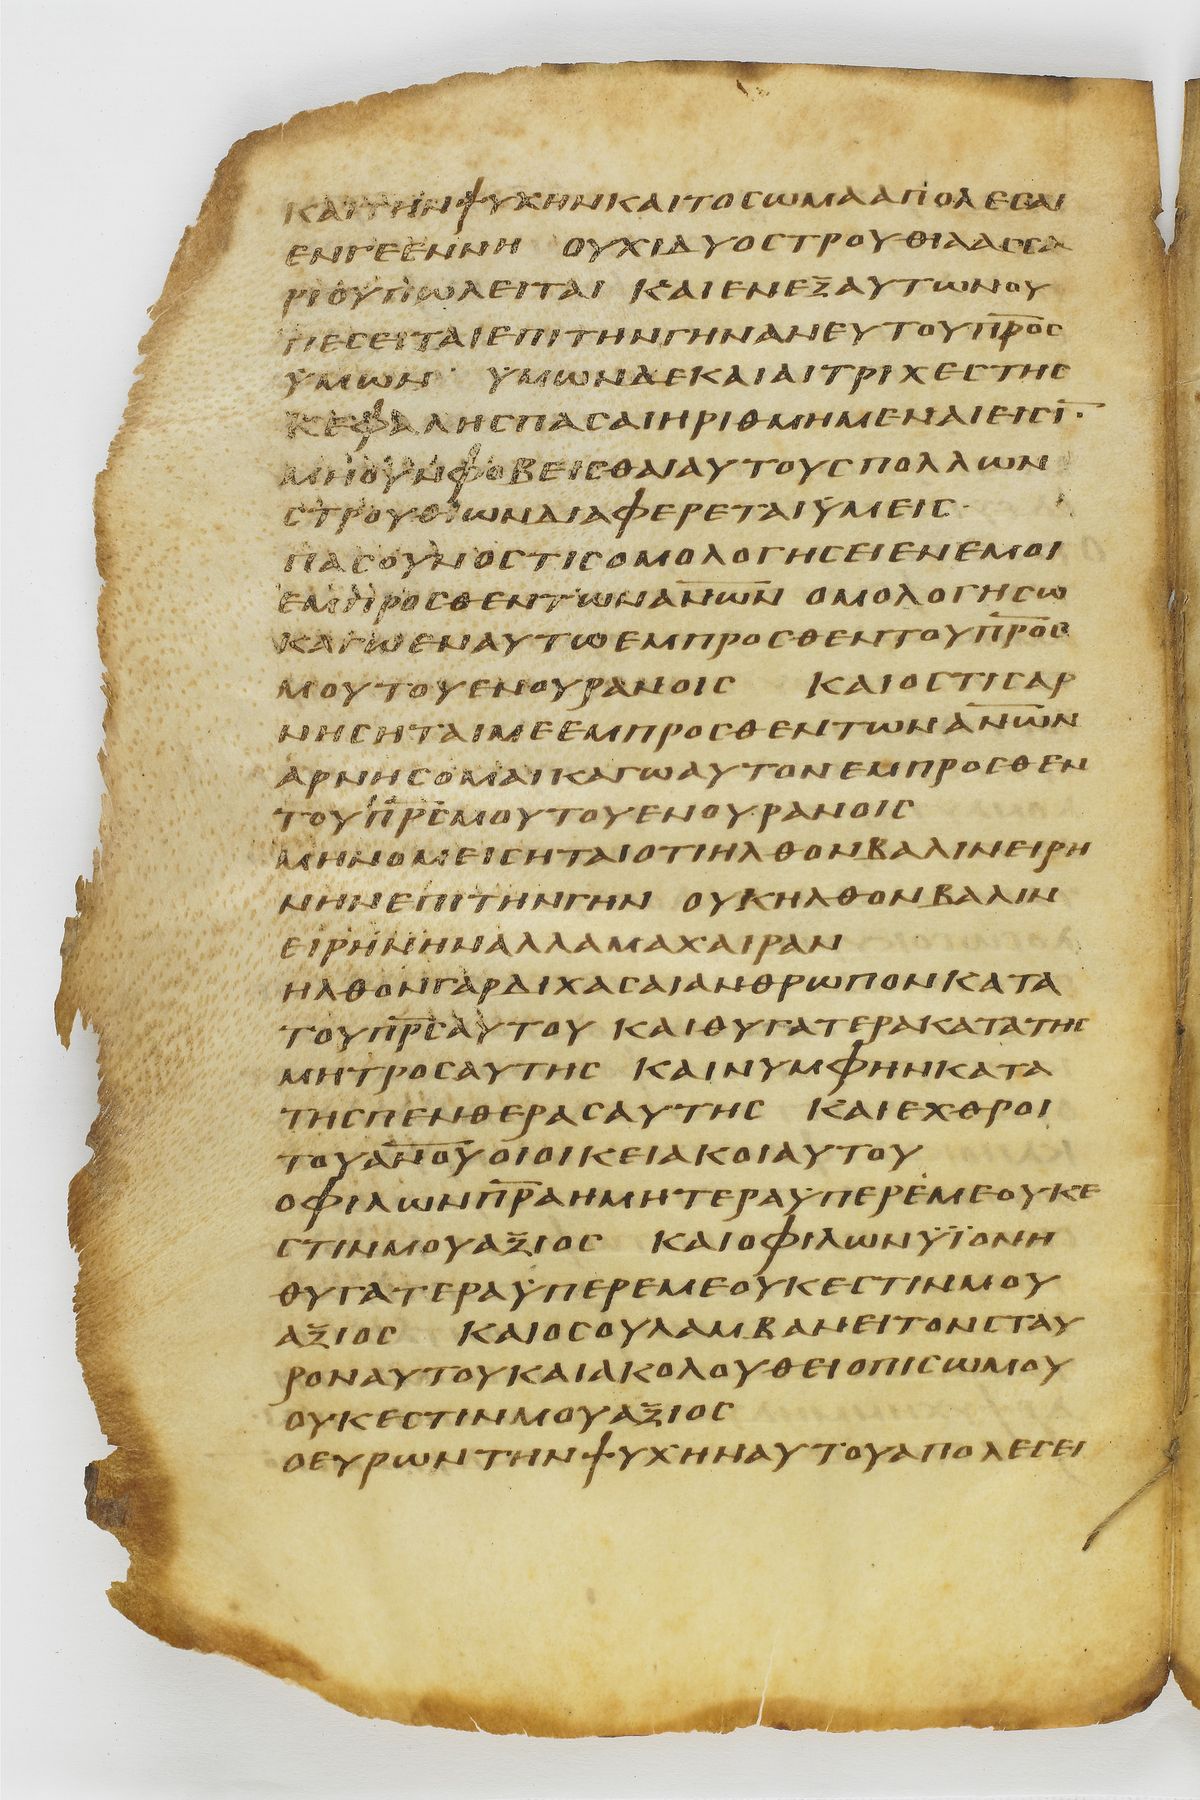 ΚΑΙΤΗΝΨΥΧΗΝΚΑΙΤΟΣΩΜΑΑΠΟΛΕΣΑΙ
ΕΝΓΕΕΝΝΗ ΟΥΧΙΔΥΟΣΤΡΟΥΘΙΑΑΣΣΑ
ΡΙΟΥΠΩΛΕΙΤΑΙ ΚΑΙΕΝΕΞΑΥΤΩΝΟΥ
ΠΕΣΕΙΤΑΙΕΠΙΤΗΝΓΗΝΑΝΕΥΤΟΥΠ̅Ρ̅Ο̅Σ
ΫΜΩΝ· ΫΜΩΝΔΕΚΑΙΑΙΤΡΙΧΕΣΤΗΣ
ΚΕΦΑΛΗΣΠΑΣΑΙΗΡΙΘΜΗΜΕΝΑΙΕΙΣΙ̅·
ΜΗΟΥΝΦΟΒΕΙΣΘΑΙΑΥΤΟΥΣΠΟΛΛΩΝ
ΣΤΡΟΥΘΙΩΝΔΙΑΦΕΡΕΤΑΙΫΜΕΙΣ·
ΠΑΣΟΥΝΟΣΤΙΣΟΜΟΛΟΓΗΣΕΙΕΝΕΜΟΙ
ΕΜΠΡΟΣΘΕΝΤΩΝΑ̅Ν̅Ω̅Ν̅ ΟΜΟΛΟΓΗΣΩ
ΚΑΓΩΕΝΑΥΤΩΕΜΠΡΟΣΘΕΝΤΟΥΠ̅Ρ̅Ο̅Σ
ΜΟΥΤΟΥΕΝΟΥΡΑΝΟΙΣ ΚΑΙΟΣΤΙΣΑΡ
ΝΗΣΗΤΑΙΜΕΕΜΠΡΟΣΘΕΝΤΩΝΑ̅Ν̅Ω̅Ν
ΑΡΝΗΣΟΜΑΙΚΑΓΩΑΥΤΟΝΕΜΠΡΟΣΘΕΝ
ΤΟΥΠ̅Ρ̅Σ̅ΜΟΥΤΟΥΕΝΟΥΡΑΝΟΙΣ
ΜΗΝΟΜΕΙΣΗΤΑΙΟΤΙΗΛΘΟΝΒΑΛΙΝΕΙΡΗ
ΝΗΝΕΠΙΤΗΝΓΗΝ ΟΥΚΗΛΘΟΝΒΑΛΙΝ
ΕΙΡΗΝΗΝΑΛΛΑΜΑΧΑΙΡΑΝ
ΗΛΘΟΝΓΑΡΔΙΧΑΣΑΙΑΝΘΡΩΠΟΝΚΑΤΑ
ΤΟΥΠ̅Ρ̅Σ̅ΑΥΤΟΥ ΚΑΙΘΥΓΑΤΕΡΑΚΑΤΑΤΗΣ
ΜΗΤΡΟΣΑΥΤΗΣ ΚΑΙΝΥΜΦΗΝΚΑΤΑ
ΤΗΣΠΕΝΘΕΡΑΣΑΥΤΗΣ ΚΑΙΕΧΘΡΟΙ
ΤΟΥΑ̅Ν̅Ο̅Υ̅ΟΙΟΙΚΕΙΑΚΟΙΑΥΤΟΥ
ΟΦΙΛΩΝΠ̅Ρ̅Α̅ΗΜΗΤΕΡΑΫΠΕΡΕΜΕΟΥΚΕ
ΣΤΙΝΜΟΥΑΞΙΟΣ ΚΑΙΟΦΙΛΩΝΫΪΟΝΗ
ΘΥΓΑΤΕΡΑΫΠΕΡΕΜΕΟΥΚΕΣΤΙΝΜΟΥ
ΑΞΙΟΣ ΚΑΙΟΣΟΥΛΑΜΒΑΝΕΙΤΟΝΣΤΑΥ
ΡΟΝΑΥΤΟΥΚΑΙΑΚΟΛΟΥΘΕΙΟΠΙΣΩΜΟΥ
ΟΥΚΕΣΤΙΝΜΟΥΑΞΙΟΣ
ΟΕΥΡΩΝΤΗΝΨΥΧΗΝΑΥΤΟΥΑΠΟΛΕΣΕΙ